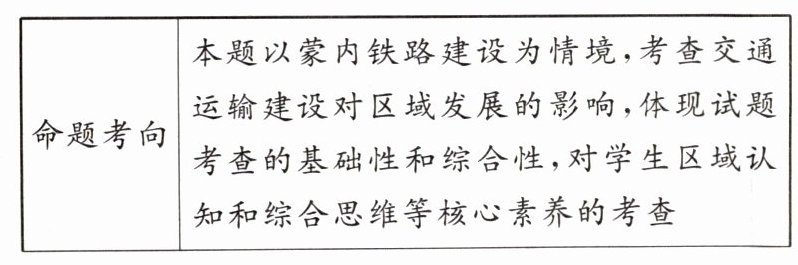 命题考向
本题以蒙内铁路建设为情境,考查交通
运输建设对区域发展的影响,体现试题
考查的基础性和综合性,对学生区域认
知和综合思维等核心素养的考查